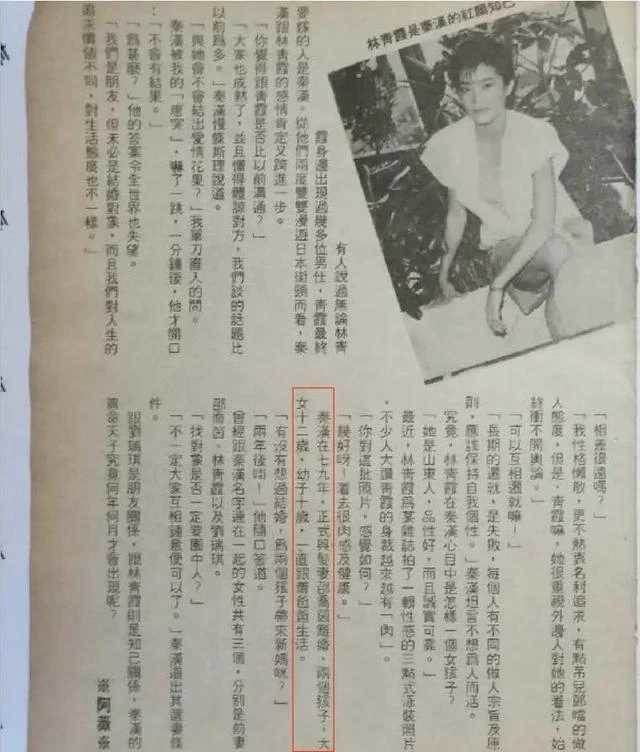 林青霞是秦漢的紅顏知己
有人說過無論林青
霞身邊出現過幾多位男仕，青霞最終
要嫁的人是秦漢。從他們兩度雙雙漫遊日本街頭而看，秦
漢跟林青霞的感情肯定又跨進一步。
「你覺得跟青霞是否比以前溝通？」
「大家也成熟了，並且懂得體諒對方，我們談的話題比
以前爲多。」秦漢慢條斯理說道。
「與她會不會結出愛情花果？」我單刀直入的問。
秦漢被我的「唐突」，嚇了一跳，一分鐘後，他才開口
：「不會有結果。」
「爲甚麽？」他的答案令全世界也失望。
「我們是朋友，但未必是結婚對象，而且我們對人生的
追求價値不同，對生活態度也不一樣。」
「相差很遠嗎？」
「我性格懶散，更不熱衷名利追求，有點吊兒郎當的做
人態度，但是，青霞嘛，她很重視外邊人對她的看法，始
終衝不開輿論。」
「可以互相遷就嘛！」
「長期的遷就，是失敗，每個人有不同的做人宗旨及原
則，應該保持自我個性。」秦漢坦言不想爲人而活。
究竟，林青霞在秦漢心目中是怎樣一個女孩子？
「她是山東人，品性好，而且誠實可靠。」
最近，林青霞爲某雜誌拍了一輯性感的三點式泳裝照片
，不少人大讚青霞的身裁越來越有「肉」。
「你對這批照片，感覺如何？」
「幾好呀！看去很肉感及健康。」
秦漢在七九年，正式與髮妻邵喬茵離婚，兩個孩子，大
女十二歲，幼子十歲，一直跟着爸爸生活。
「有沒有想過結婚，爲兩個孩子帶來新媽咪？」
「兩年後啦！」他隨口答道。
曾經跟秦漢名字連在一起的女性共有三個，分別是前妻
邵喬茵，林青霞以及劉瑞琪。
「找對象是否一定要圈中人？」
「不一定大家互相鍾意便可以了。」秦漢道出其選妻條
件。
跟劉瑞琪是朋友關係，跟林青霞則是知己關係，秦漢的
眞命天子究竟何年何月才會出現呢？
※阿薇※